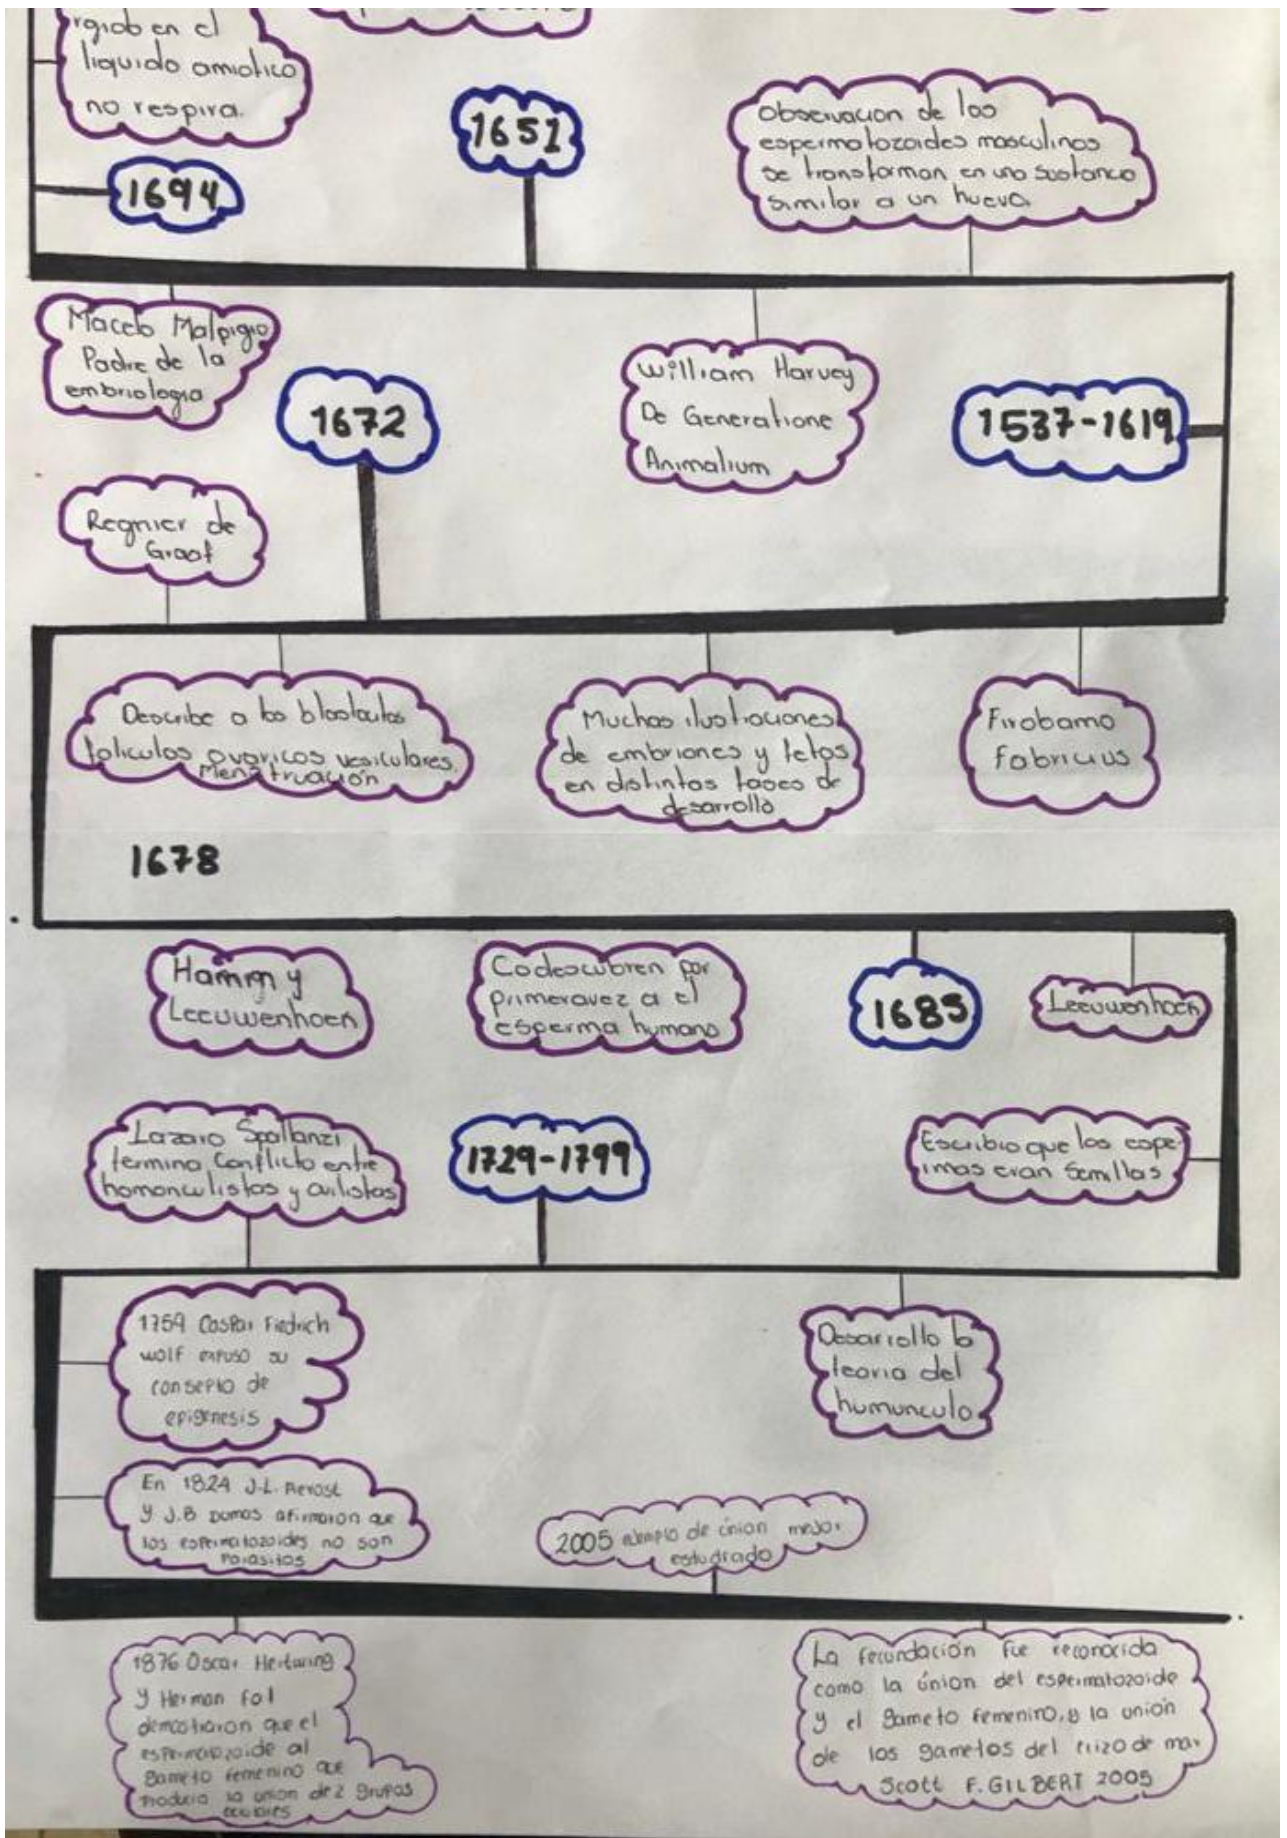 rgiob en el
liquido amiotico
no respira.
1694
1651
Observacion de los
espermatozoides masculinos
se transforman en una sustancia
similar a un huevo.
Macelo Malpigio
Padre de la
embriologia
1672
William Harvey
De Generatione
Animalium
1537-1619
Regnier de
Graaf
Describe a los
foliculos ovaricos vesiculares.
Menstruación
Muchas ilustraciones
de embriones y fetos
en distintas fases de
desarrollo
Firobamo
Fabricius
1678
Hamm y
Leeuwenhoek
Codescubren por
primeravez a el
esperma humano
1685
Leeuwenhoek
Lazaro Spallanzi
termino conflicto entre
homonculistas y ovilistas
1729-1799
Escribio que los espe
rmas eran semillas
1759 Caspar Fiedrich
wolf expuso su
consepto de
epigenesis
Desarrollo la
teoria del
humunculo
En 1824 J-L. Prevost
y J.B Dumas afirmaron que
los espermatozoides no son
Parasitos
2005 ejemplo de únion mejor
estudiado
1876 Oscar Hertwing
y Herman Fol
demostraron que el
espermatozoide al
gameto femenino que
producia la union de 2 grupos
La fecundación fue reconocida
como la únion del espermatozoide
y el gameto femenino, y la unión
de los gametos del erizo de mar
Scott F. GILBERT 2005